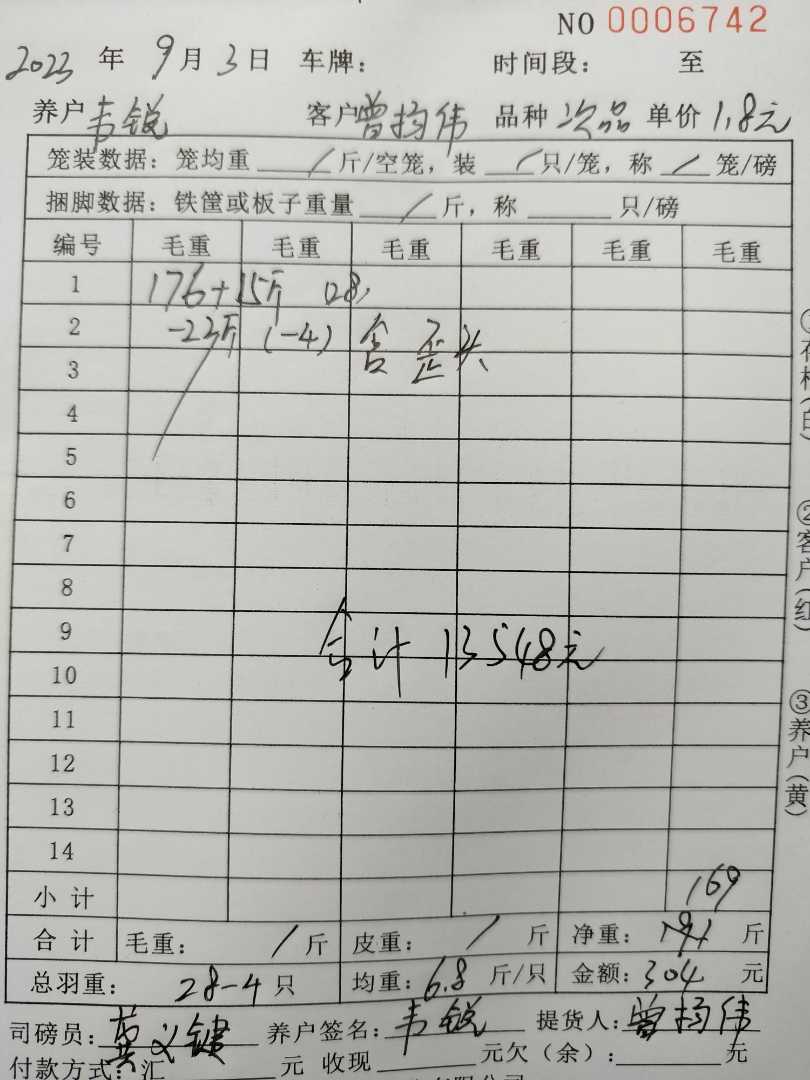 NO 0006742
2023 年 9 月 3 日 车牌: 时间段: 至
养户 韦锐 客户 曾扬伟 品种 次品 单价 1.8元
笼装数据: 笼均重 / 斤/空笼, 装 / 只/笼, 称 / 笼/磅
捆脚数据: 铁筐或板子重量 / 斤, 称 只/磅
编号 毛重 毛重 毛重 毛重 毛重 毛重
1 176+15斤 (28)
2 -22斤 (-4) 含歪头
3
4
5
6
7
8
9 合计 13548元
10
11
12
13
14
小计 169
合计 毛重: / 斤 皮重: / 斤 净重: 191 斤
总羽重: 28-4 只 均重: 6.8 斤/只 金额: 304 元
司磅员: 莫义键 养户签名: 韦锐 提货人: 曾扬伟
付款方式: 汇 元 收现 元欠(余): 元
②客户(红)
③养户(黄)